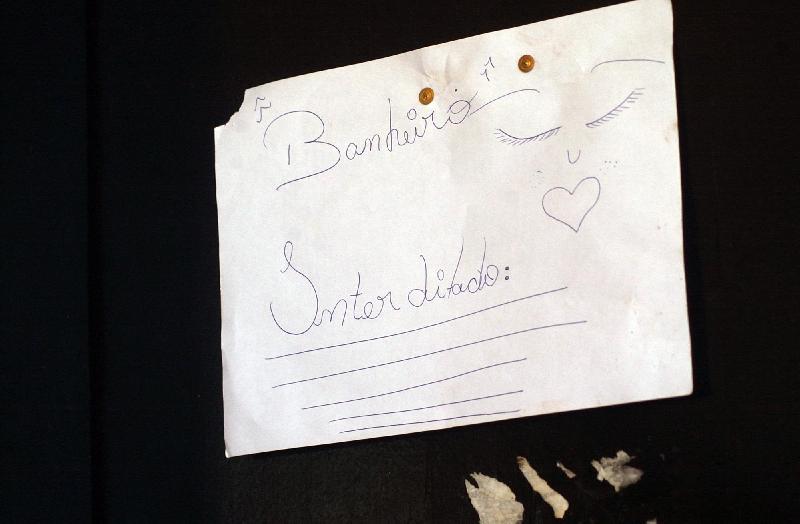 Banheiro
Interditado: